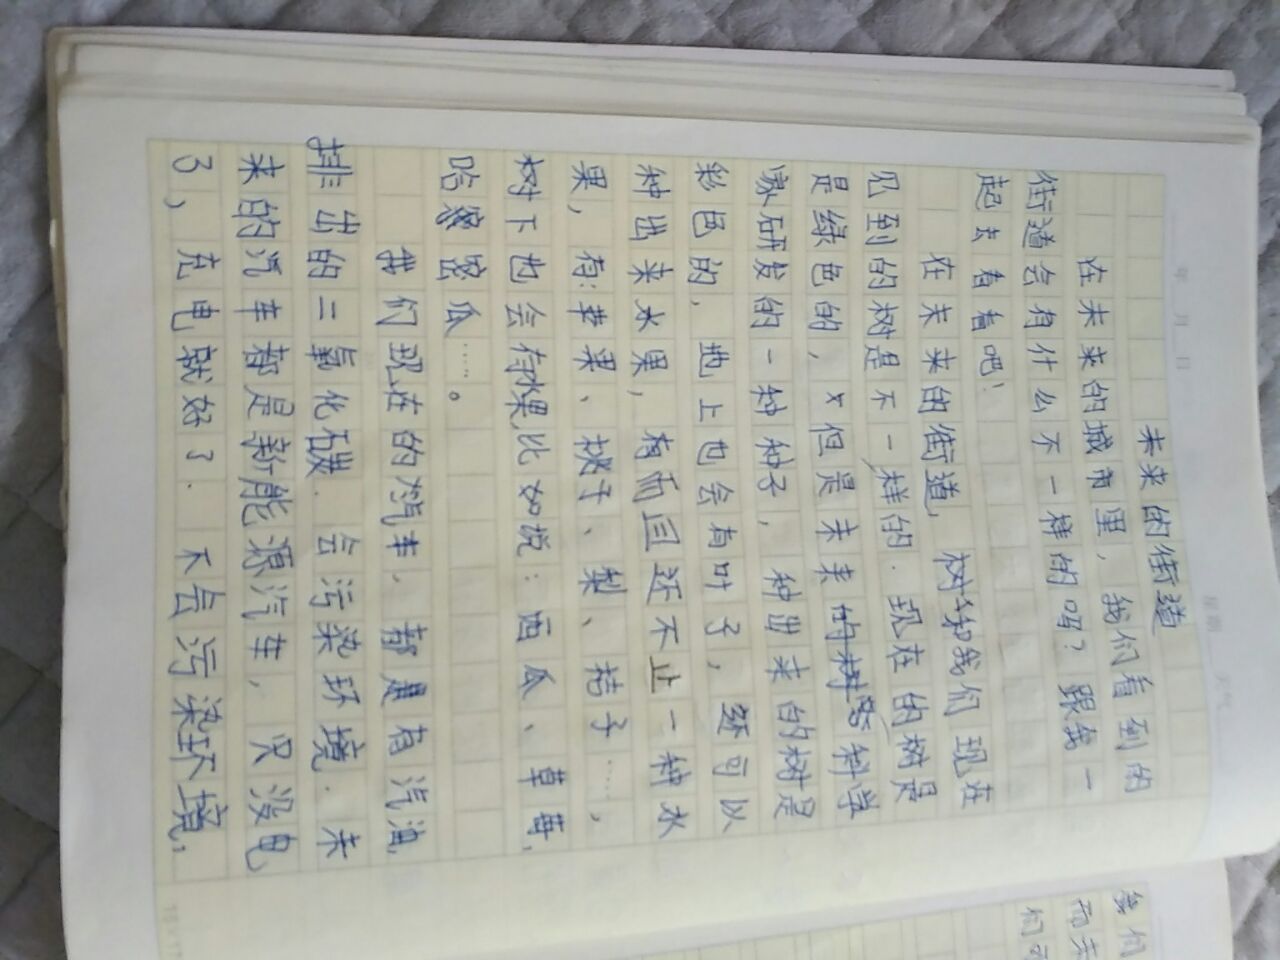 年 月 日 星期 天气
未来的街道
在未来的城市里，我们看到的
街道会有什么不一样的吗？跟我一
起去看看吧！
在未来的街道，树和我们现在
见到的树是不一样的．现在的树是
是绿色的，但是未来的科学
家研发的一种种子，种出来的树是
彩色的，地上也会有叶子，还可以
种出来水果，而且还不止一种水
果，有：苹果、桃子、梨、桔子……，
树下也会有水果比如说：西瓜、草莓，
哈密瓜……。
我们现在的汽车，都是有汽油，
排出的二氧化碳．会污染环境．未
来的汽车都是新能源汽车，只没电
了，充电就好了．不会污染环境，
我们
而未
们可